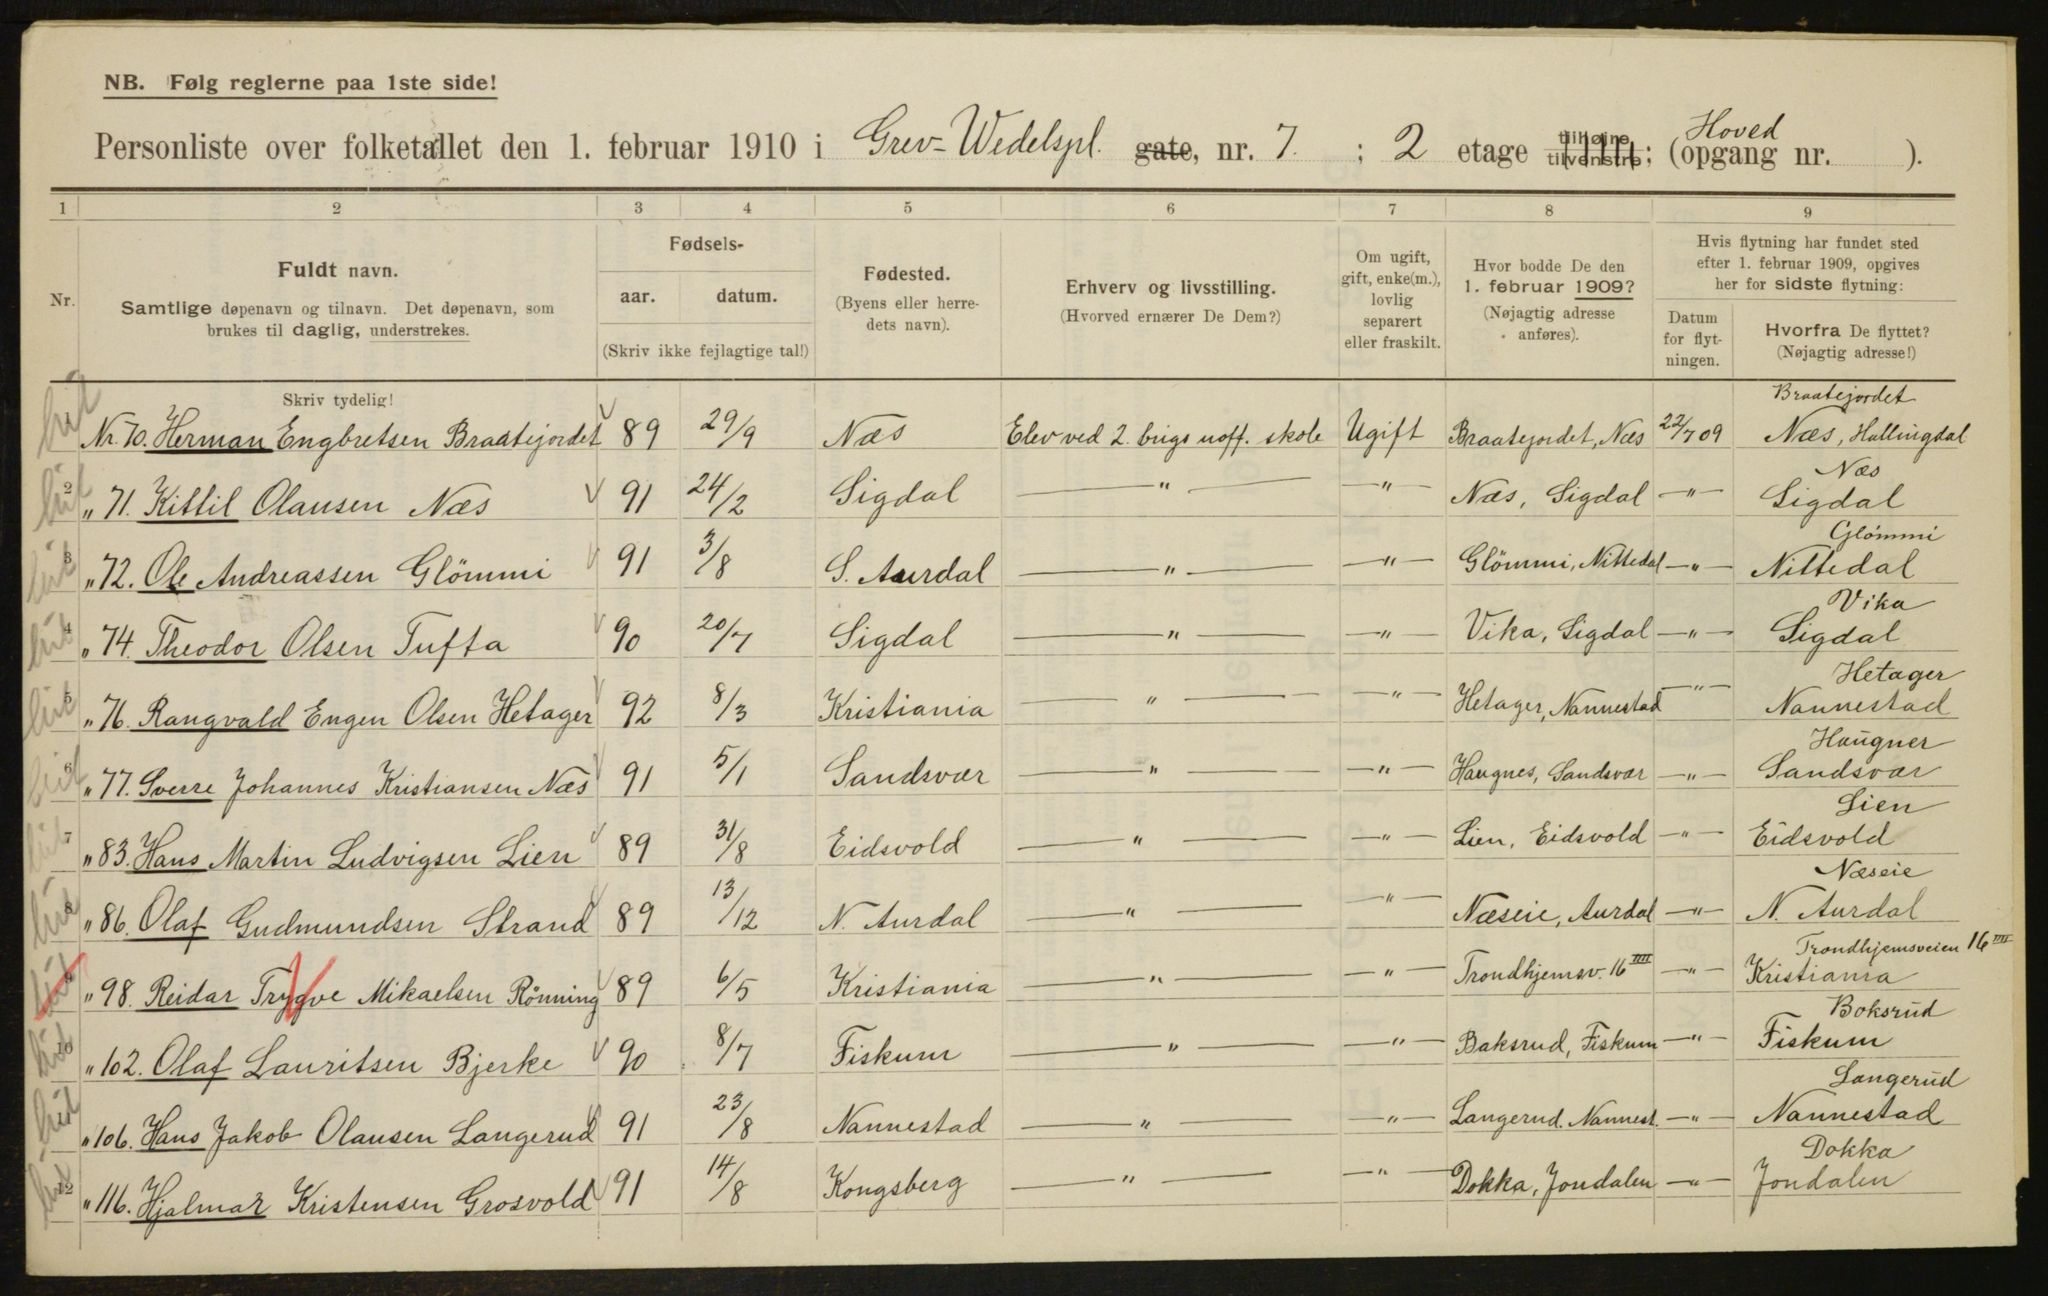 NB. Følg reglerne paa 1ste side!
Personliste over folketallet den 1. februar 1910 i Grev-Wedelspl. gate, nr. 7. ; 2 etage tilhøire tilvenstre; (opgang nr. Hoved ).
1 2 3 4 5 6 7 8 9
Nr.
Fuldt navn.
Samtlige døpenavn og tilnavn. Det døpenavn, som
brukes til daglig, understrekes.
Fødsels-
aar. datum.
(Skriv ikke fejlagtige tal!)
Fødested.
(Byens eller herre-
dets navn).
Erhverv og livsstilling.
(Hvorved ernærer De Dem?)
Om ugift,
gift, enke(m.),
lovlig
separert
eller fraskilt.
Hvor bodde De den
1. februar 1909?
(Nøjagtig adresse
anføres).
Hvis flytning har fundet sted
efter 1. februar 1909, opgives
her for sidste flytning:
Datum
for flyt-
ningen.
Hvorfra De flyttet?
(Nøjagtig adresse!)
Skriv tydelig!
1 Nr. 70. Herman Engbretsen Braatejordet 89 29/9 Næs Elev ved 2. brigs uoff. skole Ugift Braatejordet, Næs 22/7 09 Braatejordet Næs, Hallingdal
2 " 71. Kittil Olausen Næs 91 24/2 Sigdal — " — — " — Næs, Sigdal — " — Næs Sigdal
3 " 72. Ole Andreassen Glömmi 91 3/8 S. Aurdal — " — — " — Glömmi, Nittedal — " — Glömmi Nittedal
4 " 74. Theodor Olsen Tufta 90 20/7 Sigdal — " — — " — Vika, Sigdal — " — Vika Sigdal
5 " 76. Rangvald Engen Olsen Hetager 92 8/3 Kristiania — " — — " — Hetager, Nannestad — " — Hetager Nannestad
6 " 77. Sverre Johannes Kristiansen Næs 91 5/1 Sandsvær — " — — " — Haugnes, Sandsvær — " — Haugner Sandsvær
7 " 83. Hans Martin Ludvigsen Lien 89 31/8 Eidsvold — " — — " — Lien, Eidsvold — " — Lien Eidsvold
8 " 86. Olaf Gudmundsen Strand 89 13/12 N. Aurdal — " — — " — Næseie, Aurdal — " — Næseie N. Aurdal
9 " 98. Reidar Trygve Mikaelsen Rönning 89 6/5 Kristiania — " — — " — Trondhjemsv. 16 IIII — " — Trondhjemsveien 16 IIII Kristiania
10 " 102. Olaf Lauritsen Bjerke 90 8/7 Fiskum — " — — " — Baksrud, Fiskum — " — Boksrud Fiskum
11 " 106. Hans Jakob Olausen Langerud 91 23/8 Nannestad — " — — " — Langerud. Nannest. — " — Langerud Nannestad
12 " 116. Hjalmar Kristensen Grosvold 91 14/8 Kongsberg — " — — " — Dokka, Jondalen — " — Dokka Jondalen